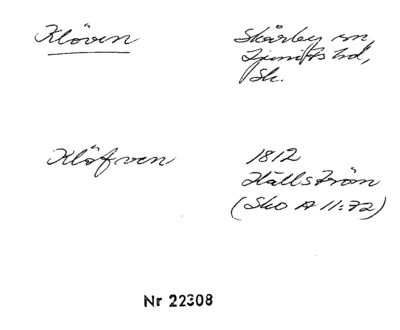 Klöven
Skårby sn,
Ljunits hd,
Sk.
Klöfven
1812
Hällström
(Sko A 11:72)
Nr 22308